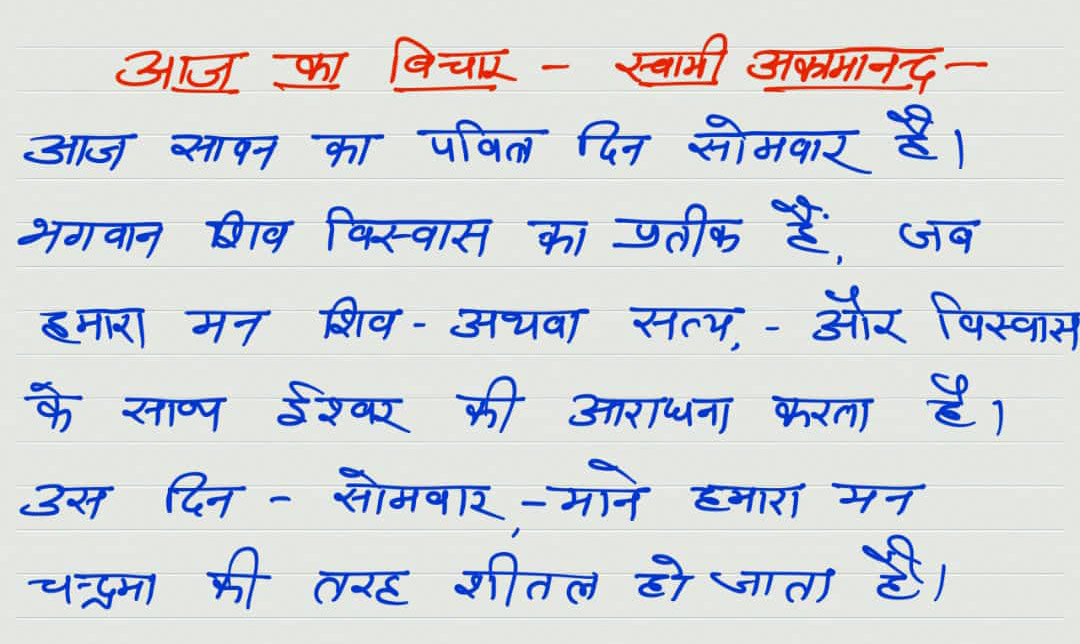 आज का विचार - स्वामी अकामानन्द -
आज सावन का पवित्र दिन सोमवार है।
भगवान शिव विस्वास का प्रतीक हैं, जब
हमारा मन शिव - अथवा सत्य, - और विस्वास
के साथ ईश्वर की आराधना करता है।
उस दिन - सोमवार, - माने हमारा मन
चन्द्रमा की तरह शीतल हो जाता है।